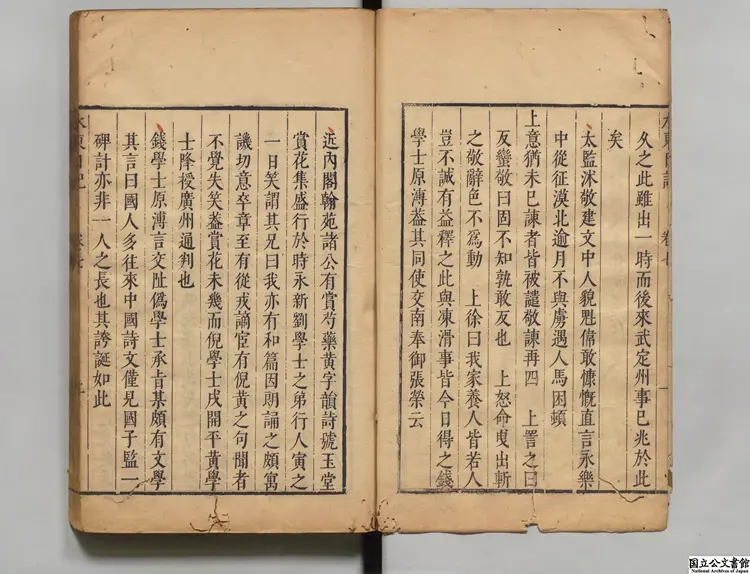 久之此雖出一時而後來武定州事已兆於此
矣
太監沐敬建文中人貌魁偉敢慷慨直言永樂
中從征漠北逾月不與虜遇人馬困頓
上意猶未已諫者皆被譴敬諫再四　上詈之曰
反蠻敬曰固不知孰敢反也　上怒命曳出斬
之敬辭色不為動　上徐曰我家養人皆若人
豈不誠有益釋之此與凍滑事皆今日得之錢
學士原溥葢其同使交南奉御張榮云
近內閣翰苑諸公有賞芍藥黃字韻詩號玉堂
賞花集盛行於時永新劉學士之弟行人寅之
一日笑謂其兄曰我亦有和篇因朗誦之頗寓
譏切意卒章至有從戎謫宦有倪黃之句聞者
不覺失笑葢賞花未幾而倪學士戍開平黃學
士降授廣州通判也
錢學士原溥言交阯偽學士承旨某頗有文學
其言曰國人多往來中國詩文僅見國子監一
碑計亦非一人之長也其誇誕如此
水東日記
卷七
国立公文書館
National Archives of Japan